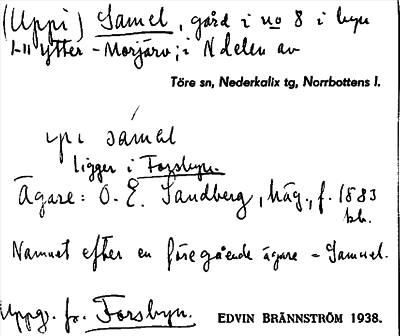 (Uppi) Samel, gård i no 8 i byn
Ytter-Morjärv; i N delen av
Töre sn, Nederkalix tg, Norrbottens l.
upi sámel
ligger i Forsbyn.
Ägare: O. E. Sandberg, häg., f. 1883
Namnet efter en föregående ägare - Samuel.
Uppg. fr. Forsbyn.
EDVIN BRÄNNSTRÖM 1938.